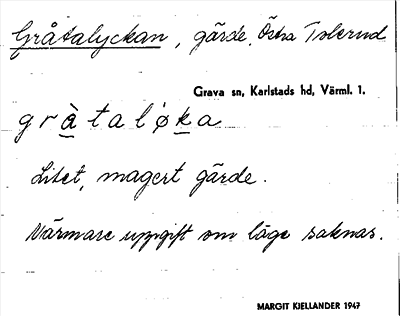 Gråtalyckan, gärde, Östra Tolerud
Grava sn, Karlstads hd, Värml. l.
gràtaløka
Litet, magert gärde.
Närmare uppgift om läge saknas.
MARGIT KJELLANDER 1947